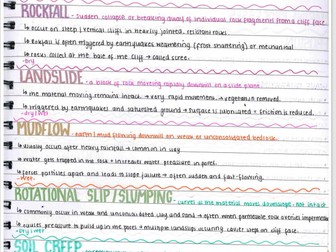 ROCKFALL - sudden collapse or breaking away of individual rock fragments from a cliff face.
↳ occurs on steep / vertical cliffs in heavily jointed, resistant rocks
↳ Rockfall is often triggered by earthquakes weathering (frost shattering) or mechanical
↳ rocks collect at the base of the cliff → called scree.
- Dry
LANDSLIDE - a block of rock moving rapidly downhill on a slide plane.
↳ the material moving remains intact → very rapid movement → vegetation removed.
↳ triggered by earthquakes and saturated ground → surface is lubricated → friction is reduced.
- Dry / Wet
MUDFLOW - earth / mud flowing downhill on weak or unconsolidated bedrock.
↳ usually occurs after heavy rainfall → common in
↳ water gets trapped in the rock → increases water pressure in pores.
↳ forces particles apart and leads to slope failure → often sudden and fast-flowing.
- Wet
ROTATIONAL SLIP/SLUMPING - curved as the material moves downslope - not intact
↳ commonly occur in weak and unconsolidated clay and sand → often when permeable rock overlies impermeable
↳ causes pressure to build up in the pores → multiple landslips usually cover week on cliff face.
- Dry / Wet
SOIL CREEP